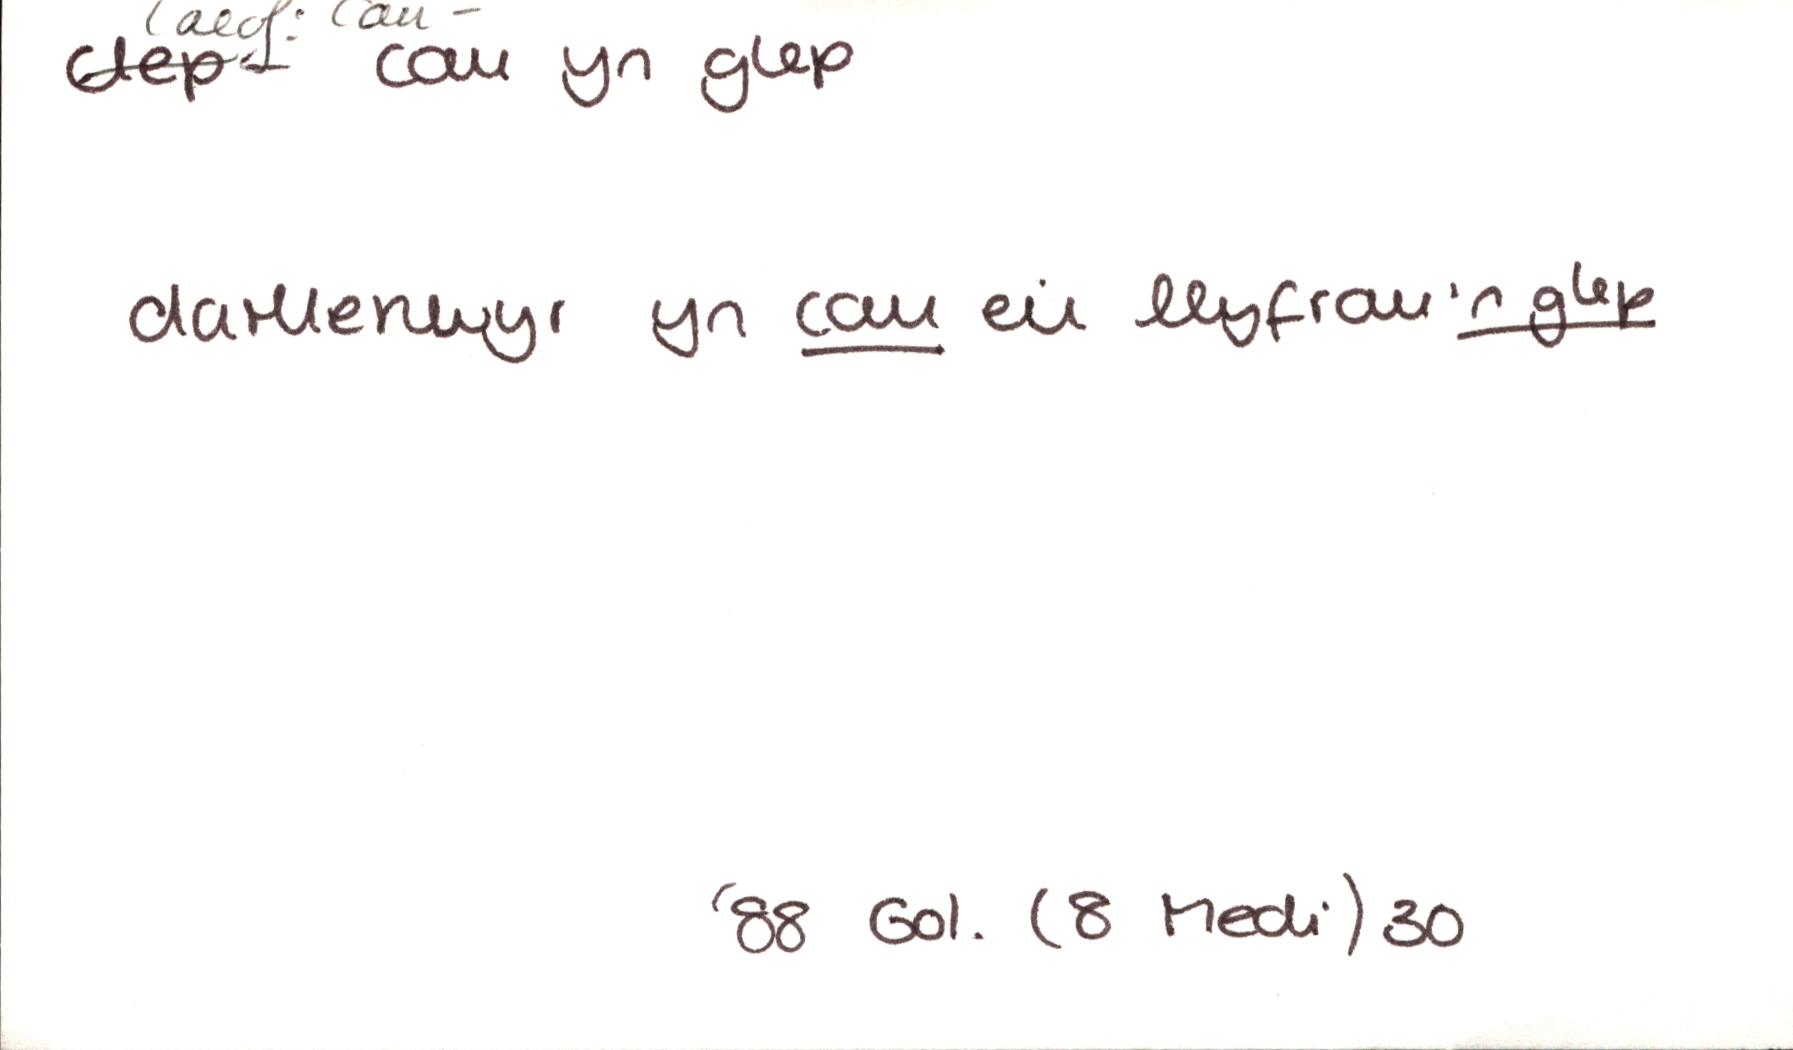 caeaf: cau -
clep1 cau yn glep
darllenwyr yn cau eu llyfrau'n glep
'88 Gol. (8 Medi) 30